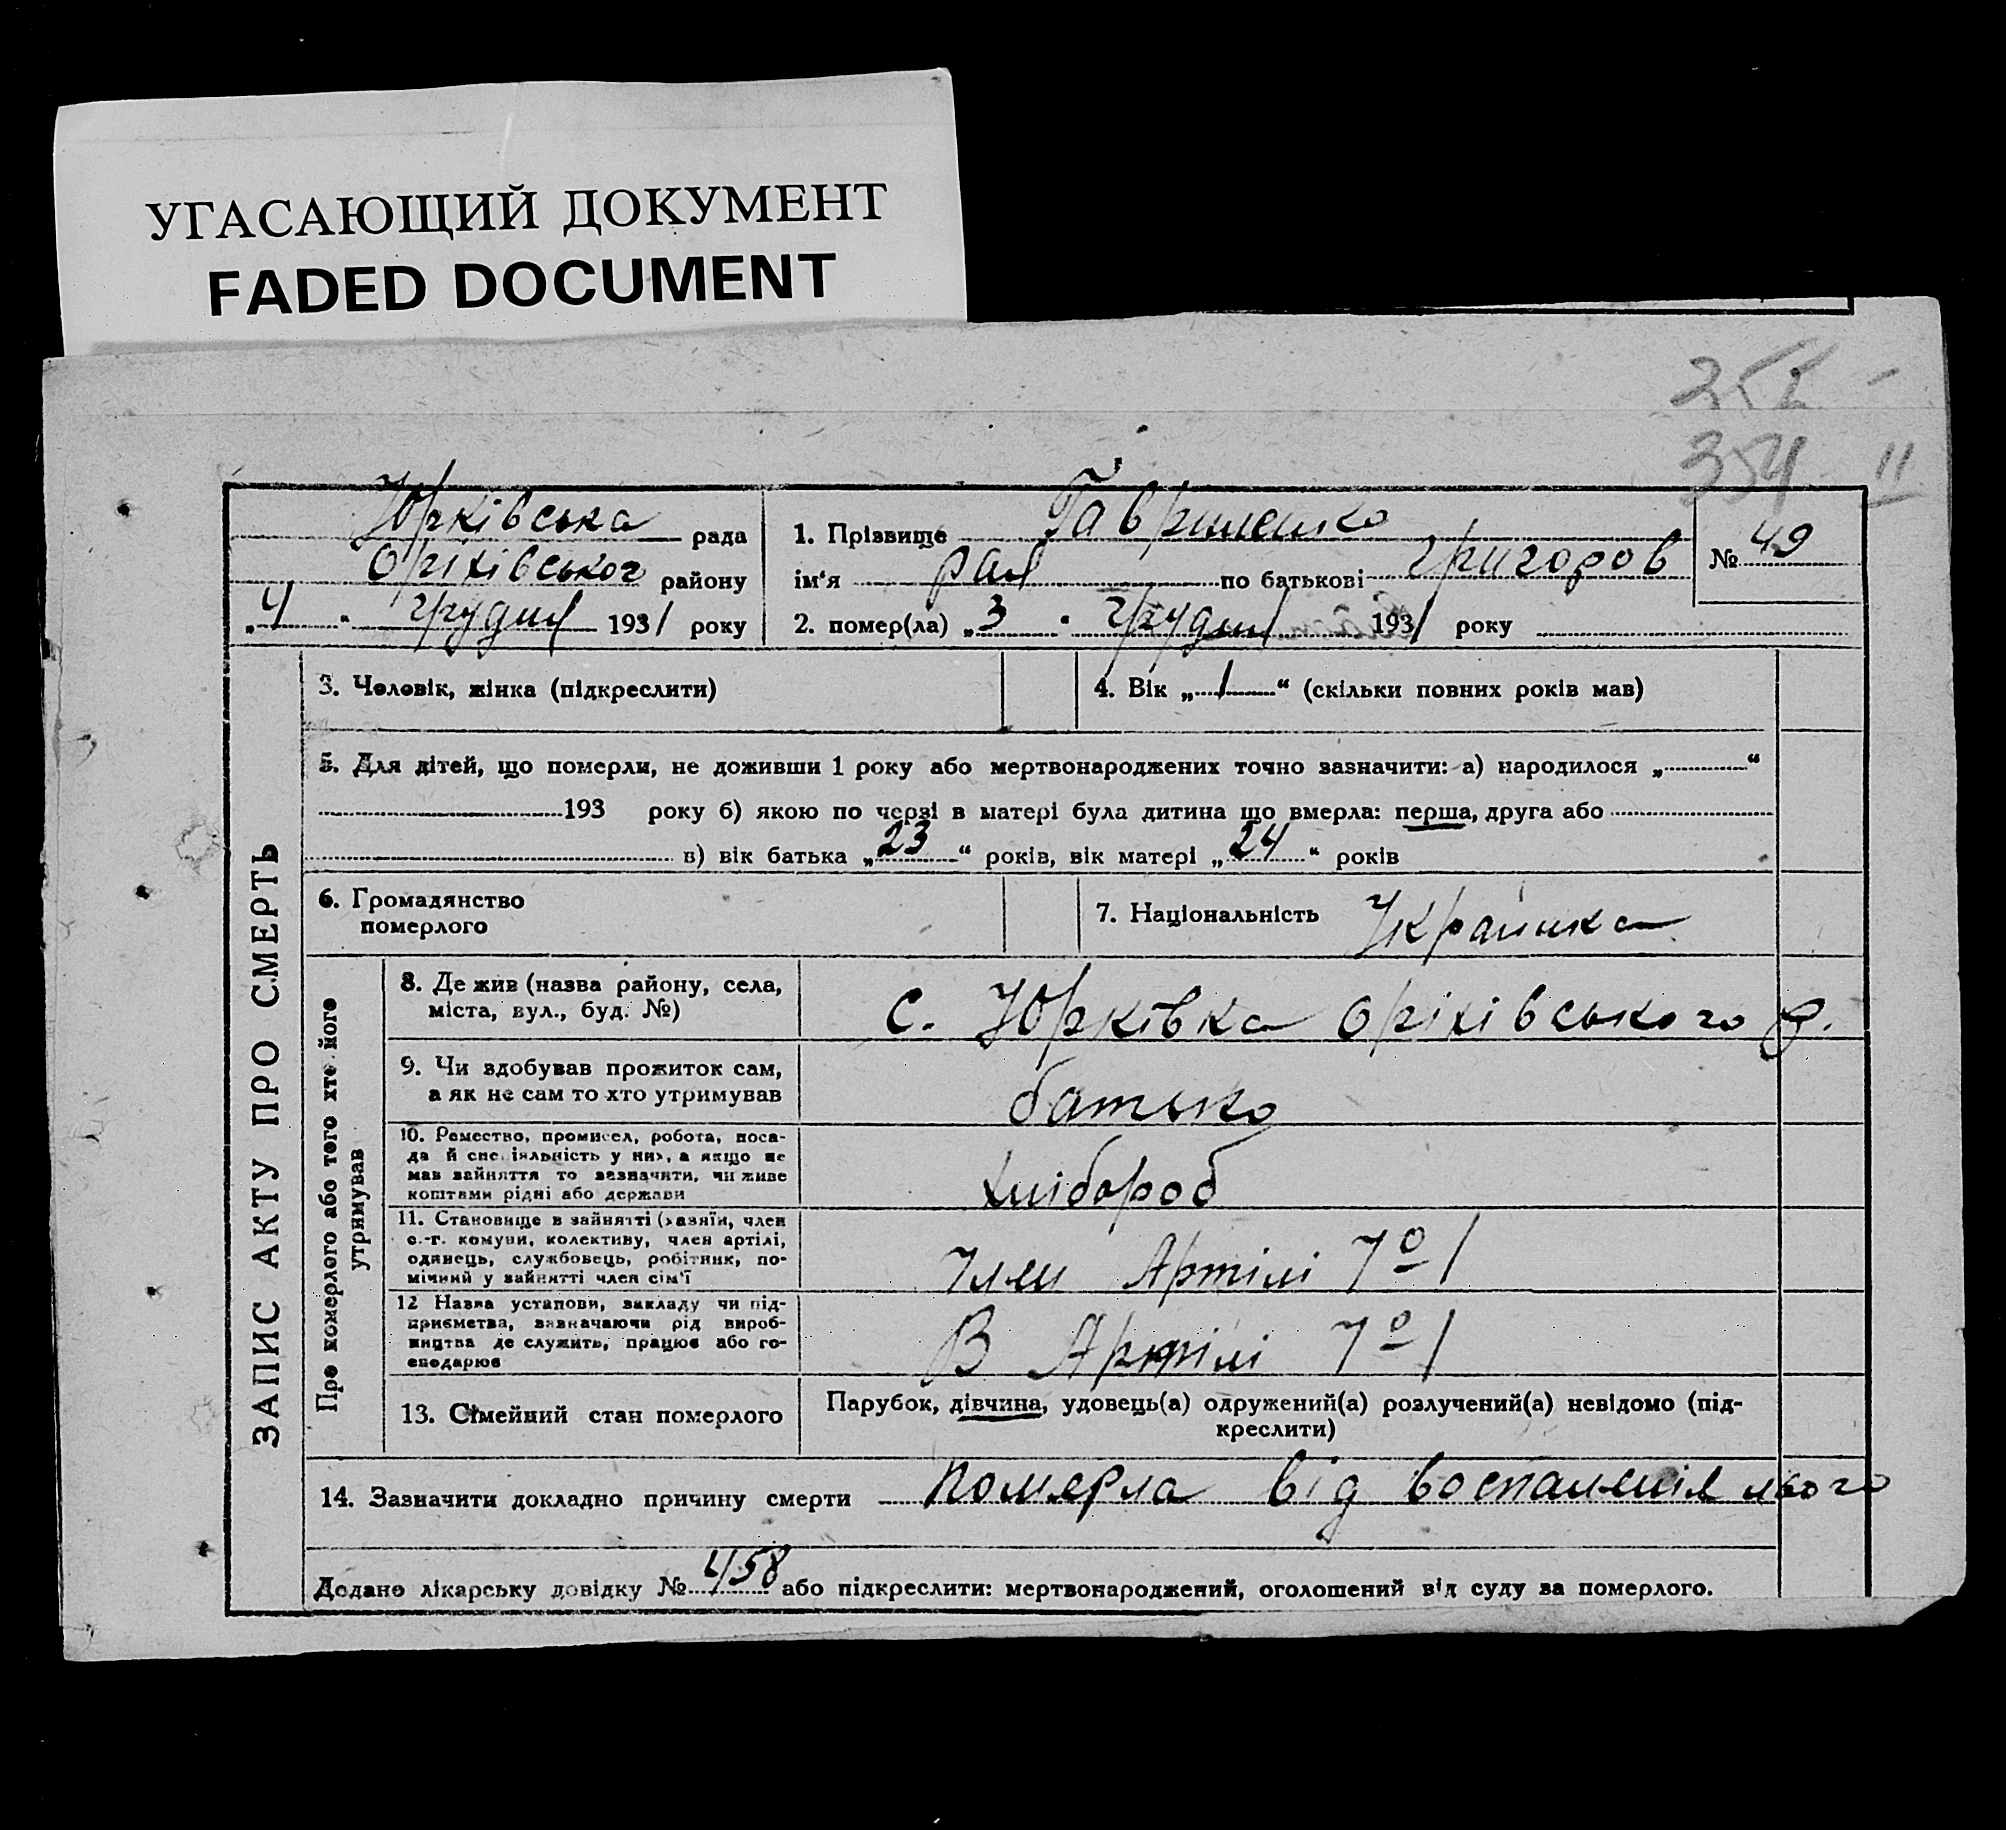 УГАСАЮЩИЙ ДОКУМЕНТ
FADED DOCUMENT
354 II
Юрківська рада
Оріхівськог району
„4“ грудня 1931 року
1. Прізвище Гавриленко
ім‘я рая по батькові Григоров
№ 49
2. помер(ла) „3“ грудня 1931 року
ЗАПИС АКТУ ПРО СМЕРТЬ
3. Чоловік, жінка (підкреслити)
4. Вік „1“ (скільки повних років мав)
5. Для дітей, що померли, не доживши 1 року або мертвонароджених точно зазначити: а) народилося „ “
193 року б) якою по черзі в матері була дитина що вмерла: перша, друга або
в) вік батька „23“ років, вік матері „24“ років
6. Громадянство
померлого
7. Національність Українка
Про померлого або того хто його
утримував
8. Де жив (назва району, села,
міста, вул., буд. №)
с. Юрківка Оріхівського р.
9. Чи здобував прожиток сам,
а як не сам то хто утримував
батько
10. Ремество, промисел, робота, поса-
да й спеціяльність у них, а якщо не
мав зайняття то зазначити, чи живе
коштами рідні або держави
хлібороб
11. Становище в зайнятті (хазяїн, член
с.-г. комуни, колективу, член артілі,
одинець, службовець, робітник, по-
мічний у зайнятті член сім‘ї
Член Артілі
12 Назва установи, закладу чи під-
приємства, зазначаючи рід вироб-
ництва де служить, працює або го-
сподарює
В Артілі
13. Сімейний стан померлого
Парубок, дівчина, удовець(а) одружений(а) розлучений(а) невідомо (під-
креслити)
14. Зазначити докладно причину смерти померла від воспаления
Додано лікарську довідку № 458 або підкреслити: мертвонароджений, оголошений від суду за померлого.